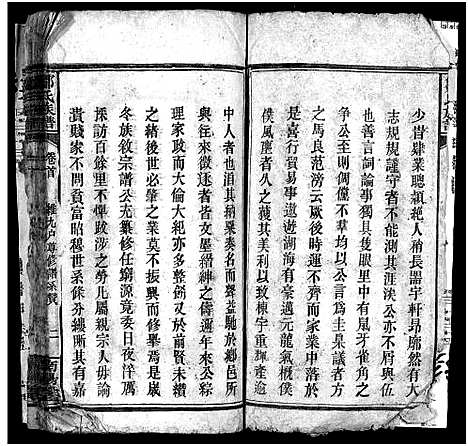 少甞肄業聰頴絶人稍長器宇軒昻廓然有大
志規規謹守者不能測其涯涘公亦不屑與伍
也善言詞論事獨具隻眼里中有鼠牙雀角之
爭公至則倜儻不羣均以公言為主杲議者方
之馬良范滂云厥後時運不齊而家業中落於
是喜行貿易事遨遊湖海有凌邁元龍氣槪僕
僕風塵者人之莪其美利以致棟宇重輝產逾
中人者也洎其納粟奏名而聲益馳於鄉邑所
與往來徵逐者皆文墨縉紳之傳邇年來公綜
理家政凡人倫大紀亦多整飭又於前賢未纘
之緒後世必為之事莫不振興而修舉焉是歲
冬族敘宗譜公充纂修任窮源竟委日夜洋漓
採訪百餘里不憚跋涉之勞凡屬親宗人毋論
貴賤家不問貧富昭穆世系餘分縷晰可謂其
氏族譜
卷首